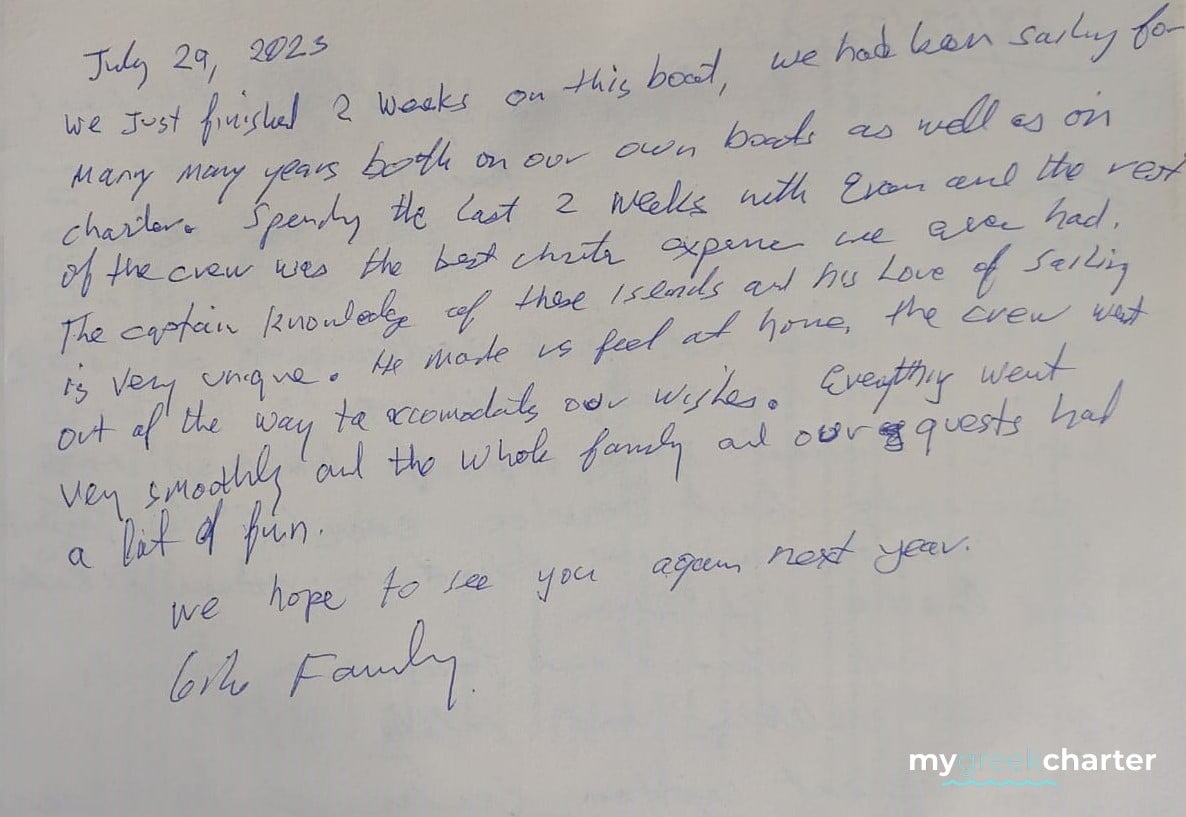 July 29, 2023
We Just finished 2 weeks on this boat, we had been sailing for
many many years both on our own boats as well as on
charter. Spending the last 2 weeks with and the rest
of the crew was the best experience we ever had.
The captain knowledge of these Islands and his Love of Sailing
is very unique. He made us feel at home, the crew went
out of the way to our wishes. Everything went
very smoothly and the whole family and our guests had
a lot of fun.
we hope to see you again next year.
Family
mygreekcharter